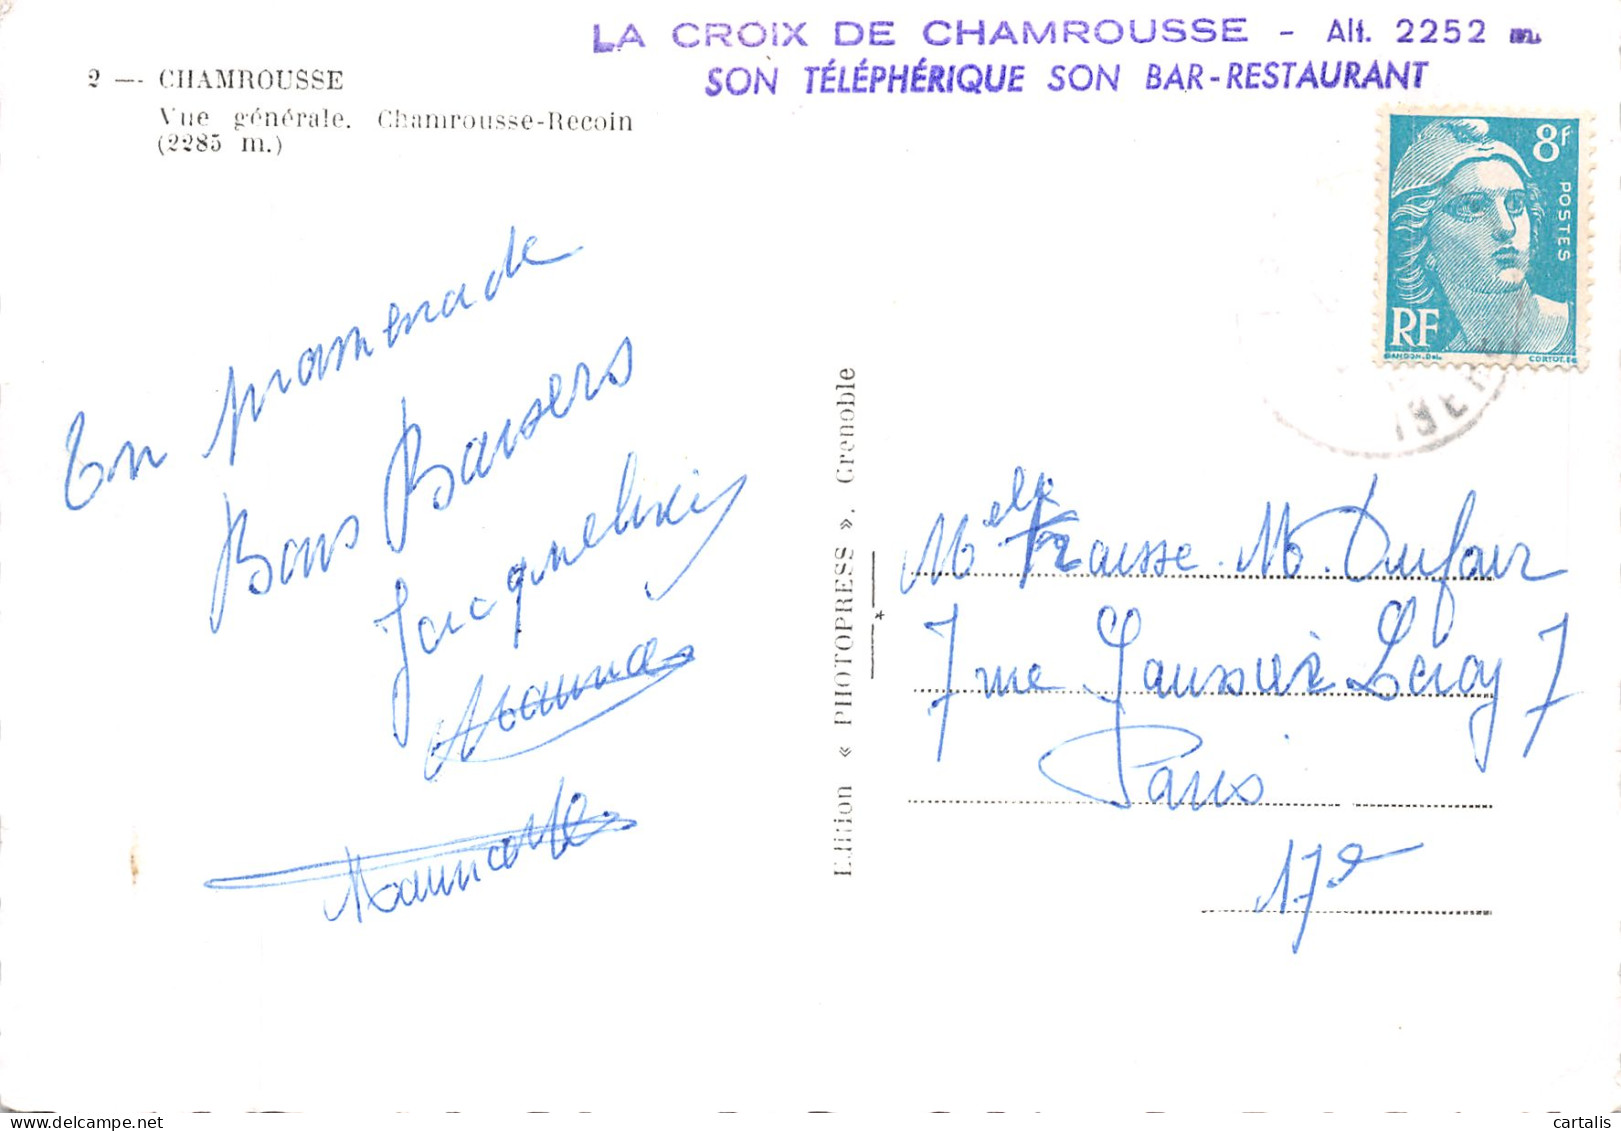 LA CROIX DE CHAMROUSSE - Alt. 2252 m.
SON TÉLÉPHÉRIQUE SON BAR-RESTAURANT
2 — CHAMROUSSE
Vue générale. Chamrousse-Recoin
(2285 m.)
8f
POSTES
RF
GANDON.Del.
CORTOT.Sc
En promenade
Bons Baisers
Edition « PHOTOPRESS ». Grenoble
Melle Trausse. M. Dufour
7 rue Saussier Leroy 7
Paris
17e
www.delcampe.net
cartalis